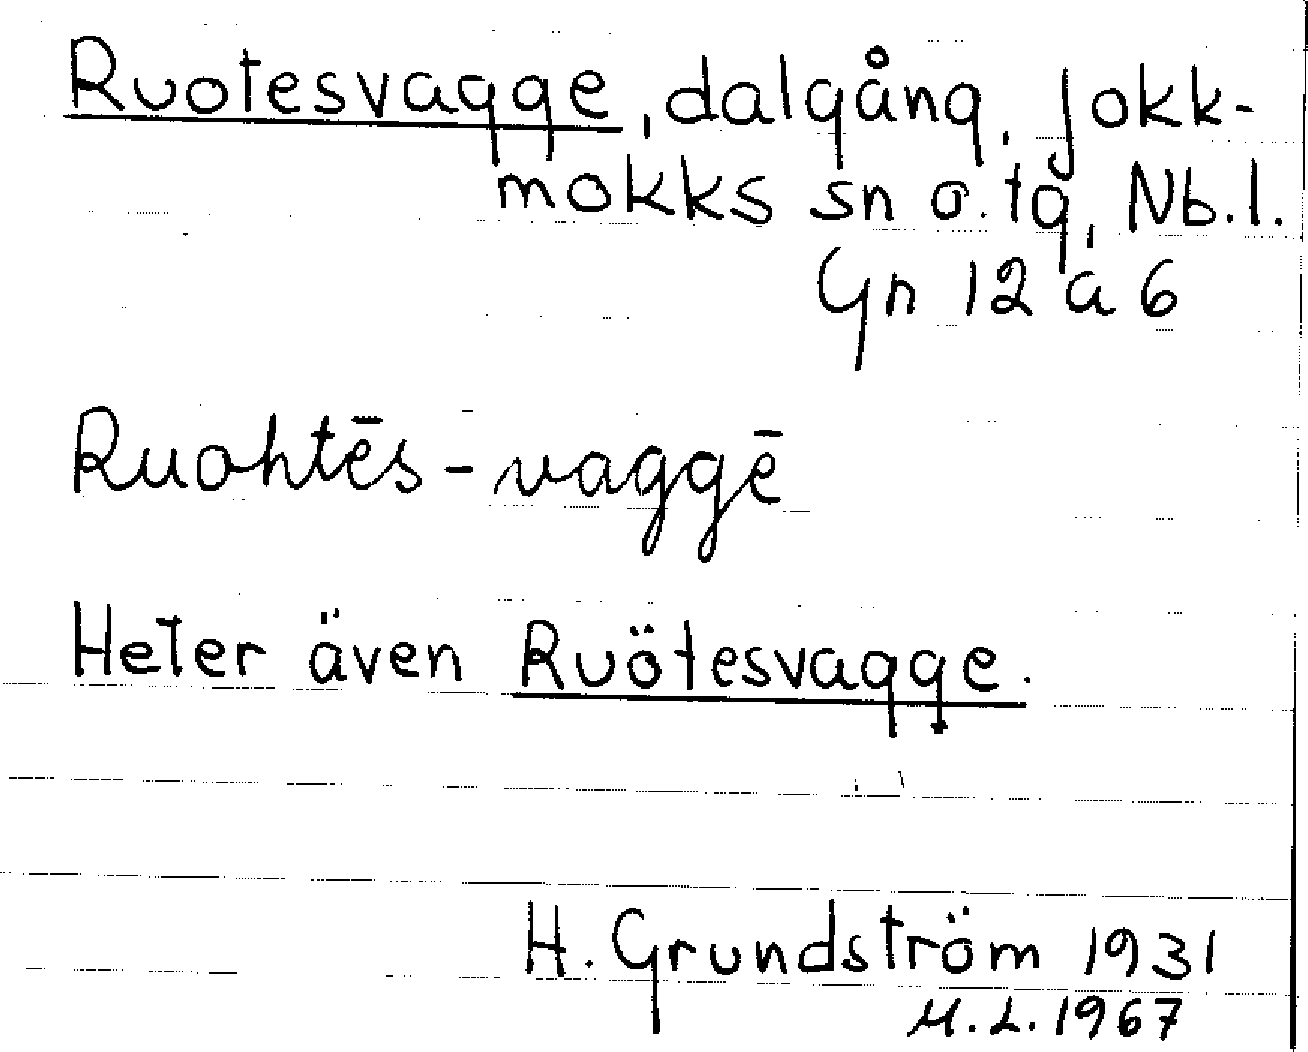 Ruotesvagge, dalgång, Jokk-
mokks sn o. tg, Nb.l.
Gn 12 á 6
Ruohtēs-vaggē
Heter även Ruötesvagge.
H. Grundström 1931
M.L. 1967